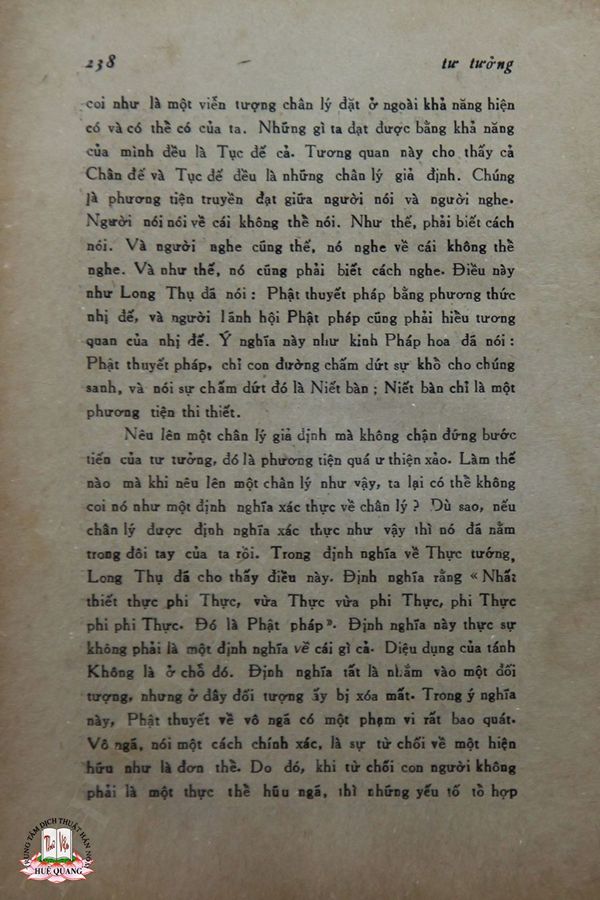 238
tư tưởng
coi như là một viễn tượng chân lý đặt ở ngoài khả năng hiện
có và có thể có của ta. Những gì ta đạt được bằng khả năng
của mình đều là Tục đế cả. Tương quan này cho thấy cả
Chân đế và Tục đế đều là những chân lý giả định. Chúng
là phương tiện truyền đạt giữa người nói và người nghe.
Người nói nói về cái không thể nói. Như thế, phải biết cách
nói. Và người nghe cũng thế, nó nghe về cái không thể
nghe. Và như thế, nó cũng phải biết cách nghe. Điều này
như Long Thụ đã nói : Phật thuyết pháp bằng phương thức
nhị đế, và người lãnh hội Phật pháp cũng phải hiểu tương
quan của nhị đế. Ý nghĩa này như kinh Pháp hoa đã nói :
Phật thuyết pháp, chỉ con đường chấm dứt sự khổ cho chúng
sanh, và nói sự chấm dứt đó là Niết bàn ; Niết bàn chỉ là một
phương tiện thi thiết.
Nêu lên một chân lý giả định mà không chận đứng bước
tiến của tư tưởng, đó là phương tiện quá ư thiện xảo. Làm thế
nào mà khi nêu lên một chân lý như vậy, ta lại có thể không
coi nó như một định nghĩa xác thực về chân lý ? Dù sao, nếu
chân lý được định nghĩa xác thực như vậy thì nó đã nằm
trong đôi tay của ta rồi. Trong định nghĩa về Thực tướng,
Long Thụ đã cho thấy điều này. Định nghĩa rằng «Nhất
thiết thực phi Thực, vừa Thực vừa phi Thực, phi Thực
phi phi Thực. Đó là Phật pháp». Định nghĩa này thực sự
không phải là một định nghĩa về cái gì cả. Diệu dụng của tánh
Không là ở chỗ đó. Định nghĩa tất là nhắm vào một đối
tượng, nhưng ở đây đối tượng ấy bị xóa mất. Trong ý nghĩa
này, Phật thuyết về vô ngã có một phạm vi rất bao quát.
Vô ngã, nói một cách chính xác, là sự từ chối về một hiện
hữu như là đơn thể. Do đó, khi từ chối con người không
phải là một thực thể hữu ngã, thì những yếu tố tổ hợp
TRUNG TÂM DỊCH THUẬT HÁN NÔM
HUỆ QUANG